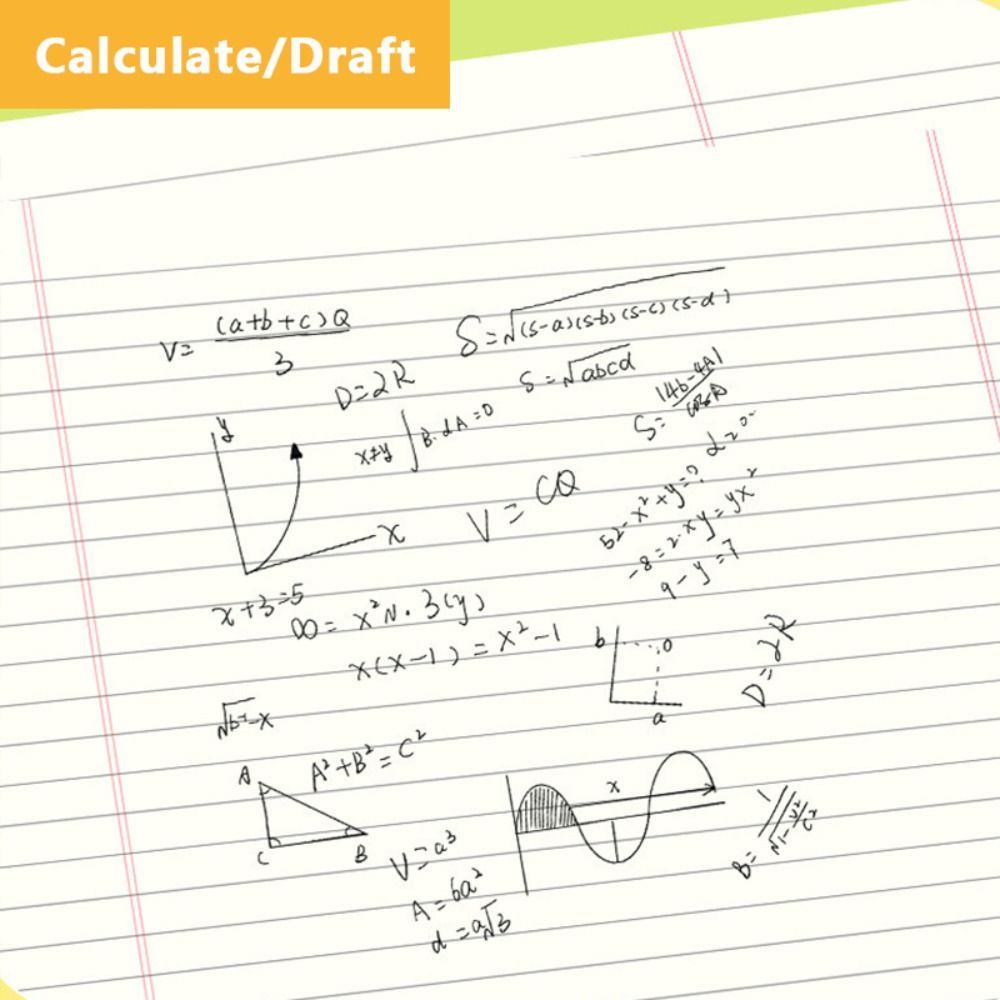 Calculate/Draft
V= (a+b+c)Q
3
S=√(s-a)(s-b)(s-c)(s-d)
D=2R
S=√abcd
y
x≠y ∫B.dA=0
x
V=CQ
52-x²+y=?
-8=2·xy=yx²
9-y=7
x+3=5
∞=x²N·3(y)
x(x-1)=x²-1
b
o
a
D=2R
A²+B²=C²
A
C
B
x
V=a³
A=6a²
d=a√3
B= 1
√1-v²/c²